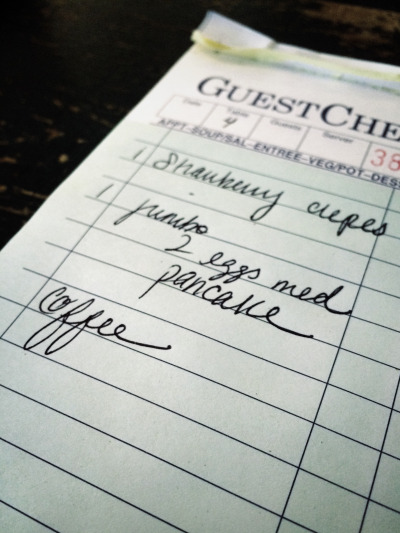 GUESTCHE
Date Table Guests Server
4 38
APPT-SOUP/SAL-ENTREE-VEG/POT-DES
1 Strawberry crepes
1 jumbo
2 eggs med
pancake
Coffee